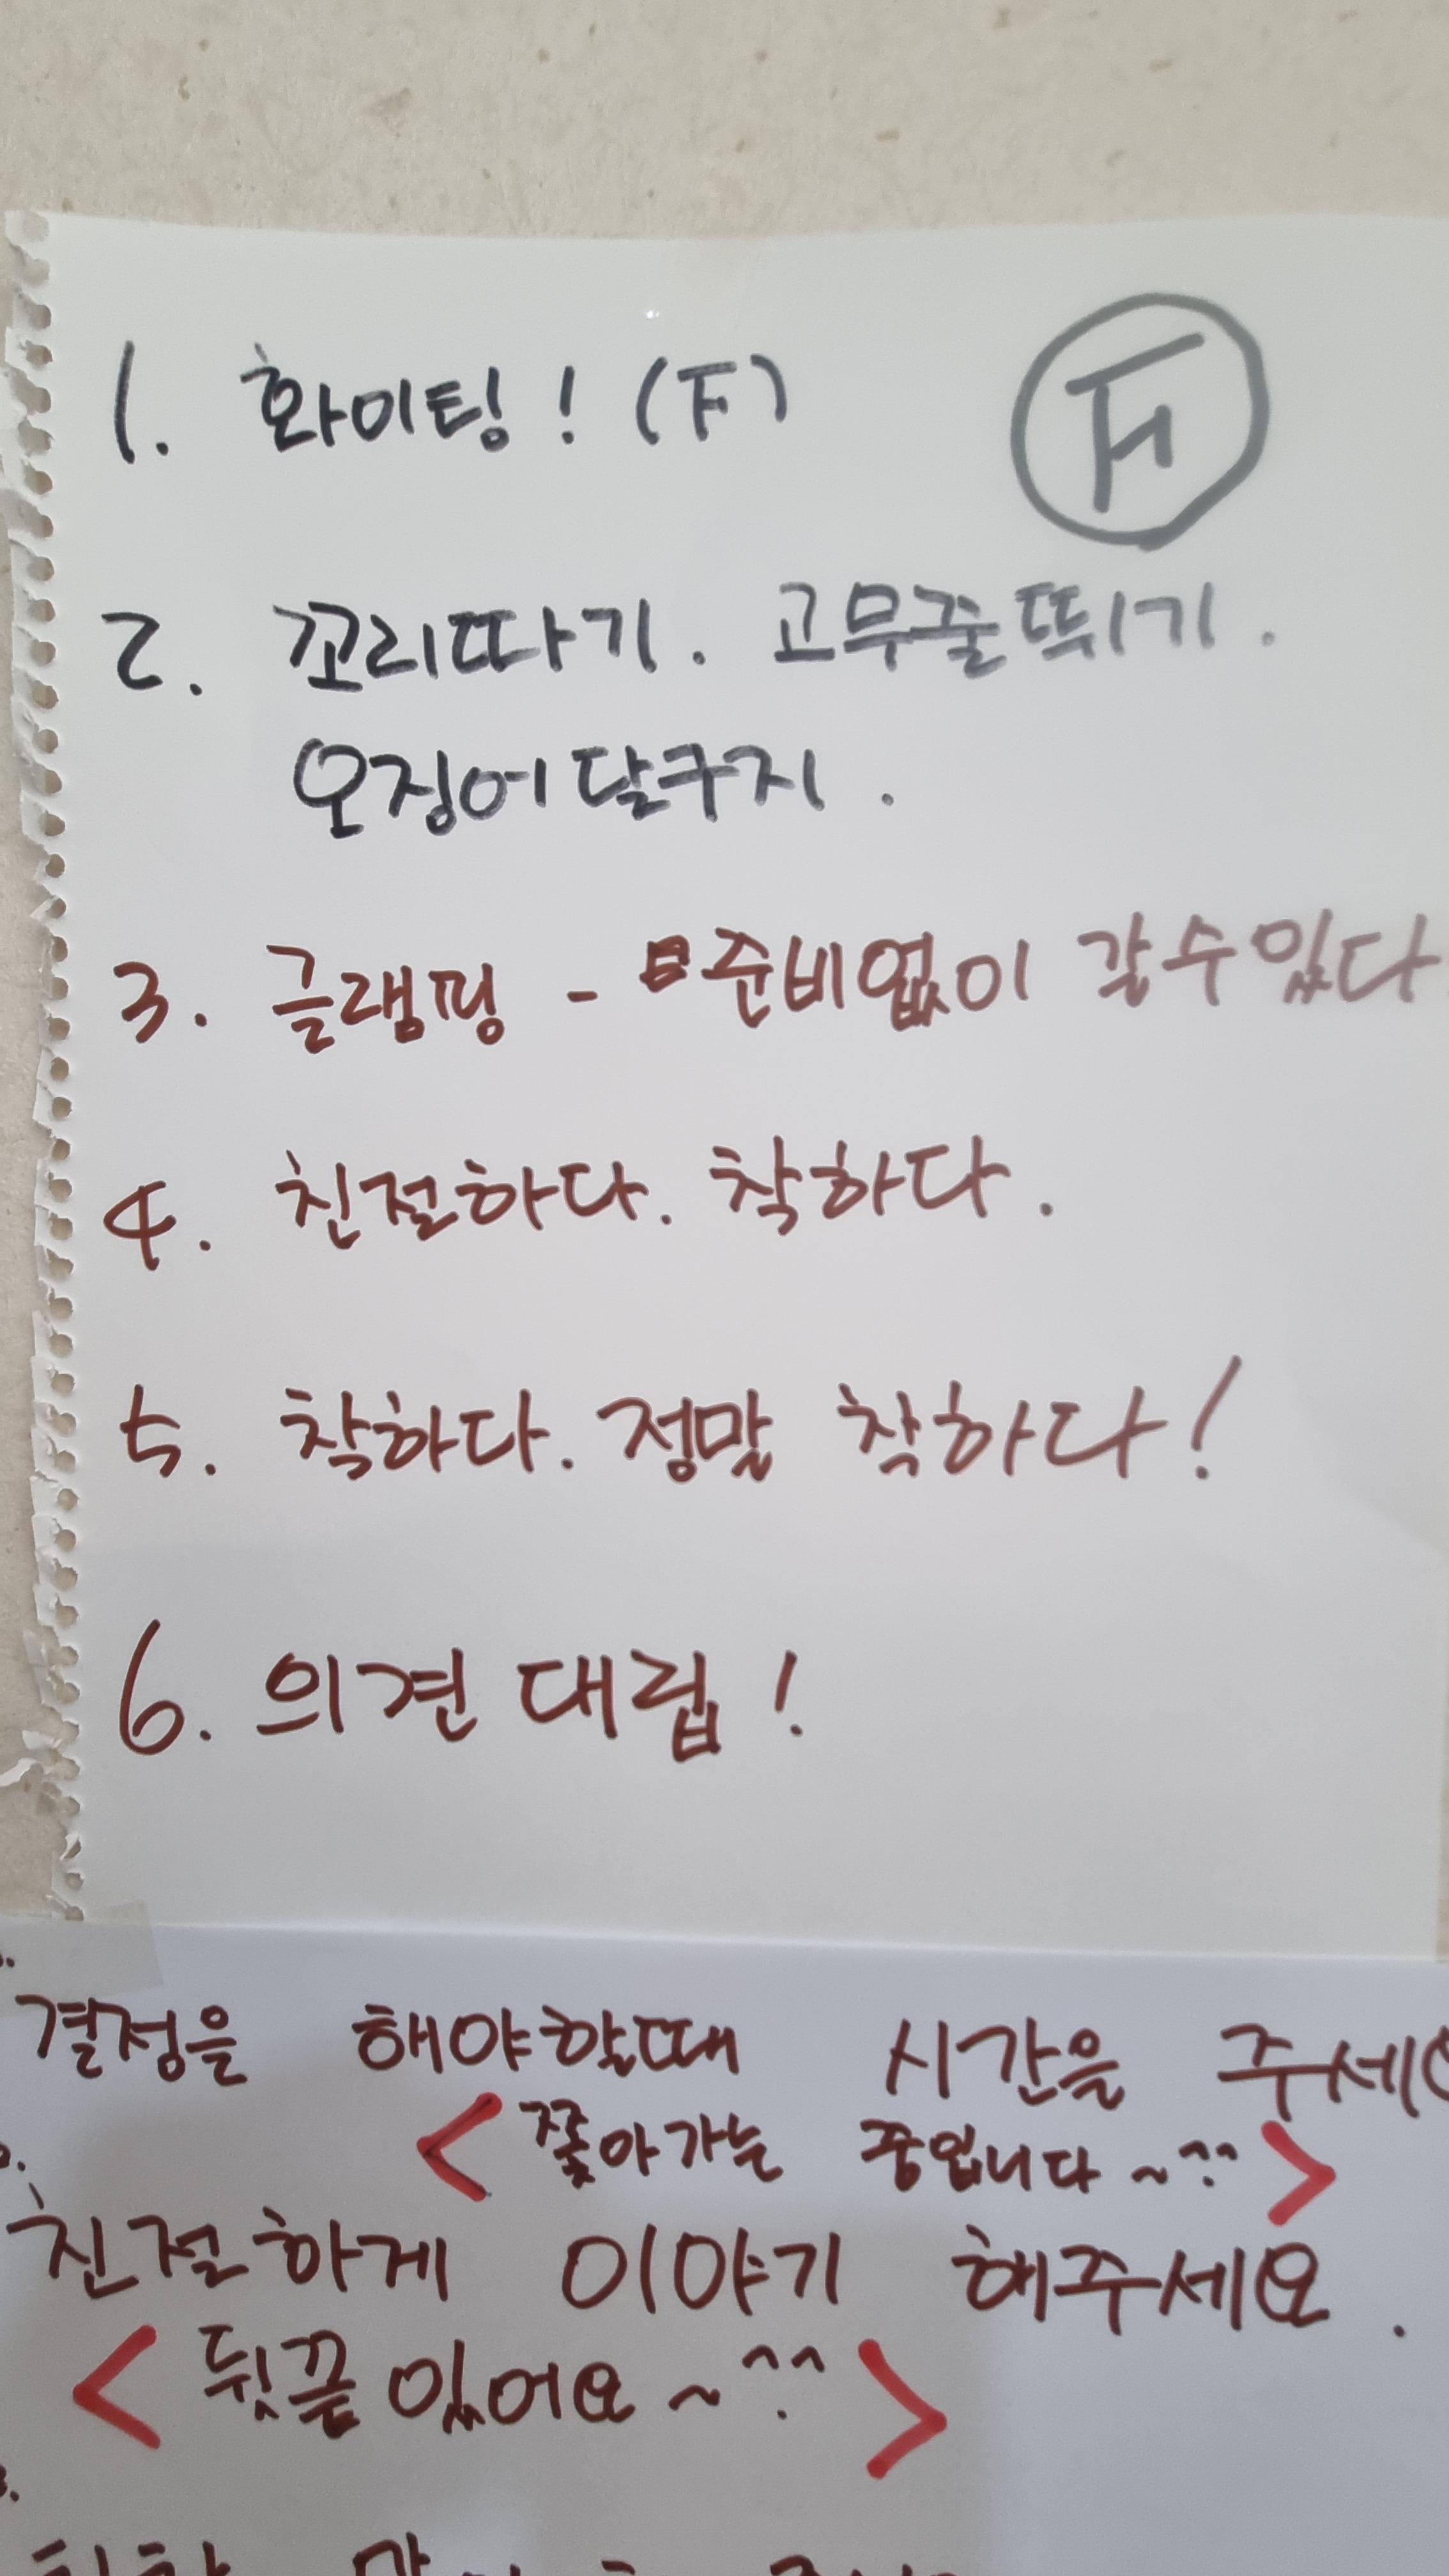 1. 화이팅! (F)
F
2. 꼬리따기. 고무줄뛰기.
오징어달구지.
3. 글램핑 - 준비없이 갈수있다
4. 친절하다. 착하다.
5. 착하다. 정말 착하다!
6. 의견 대립!
결정을 해야할때 시간을 주세
< 쫓아가는 중입니다~^^ >
친절하게 이야기 해주세요.
< 뒷끝있어요~^^ >